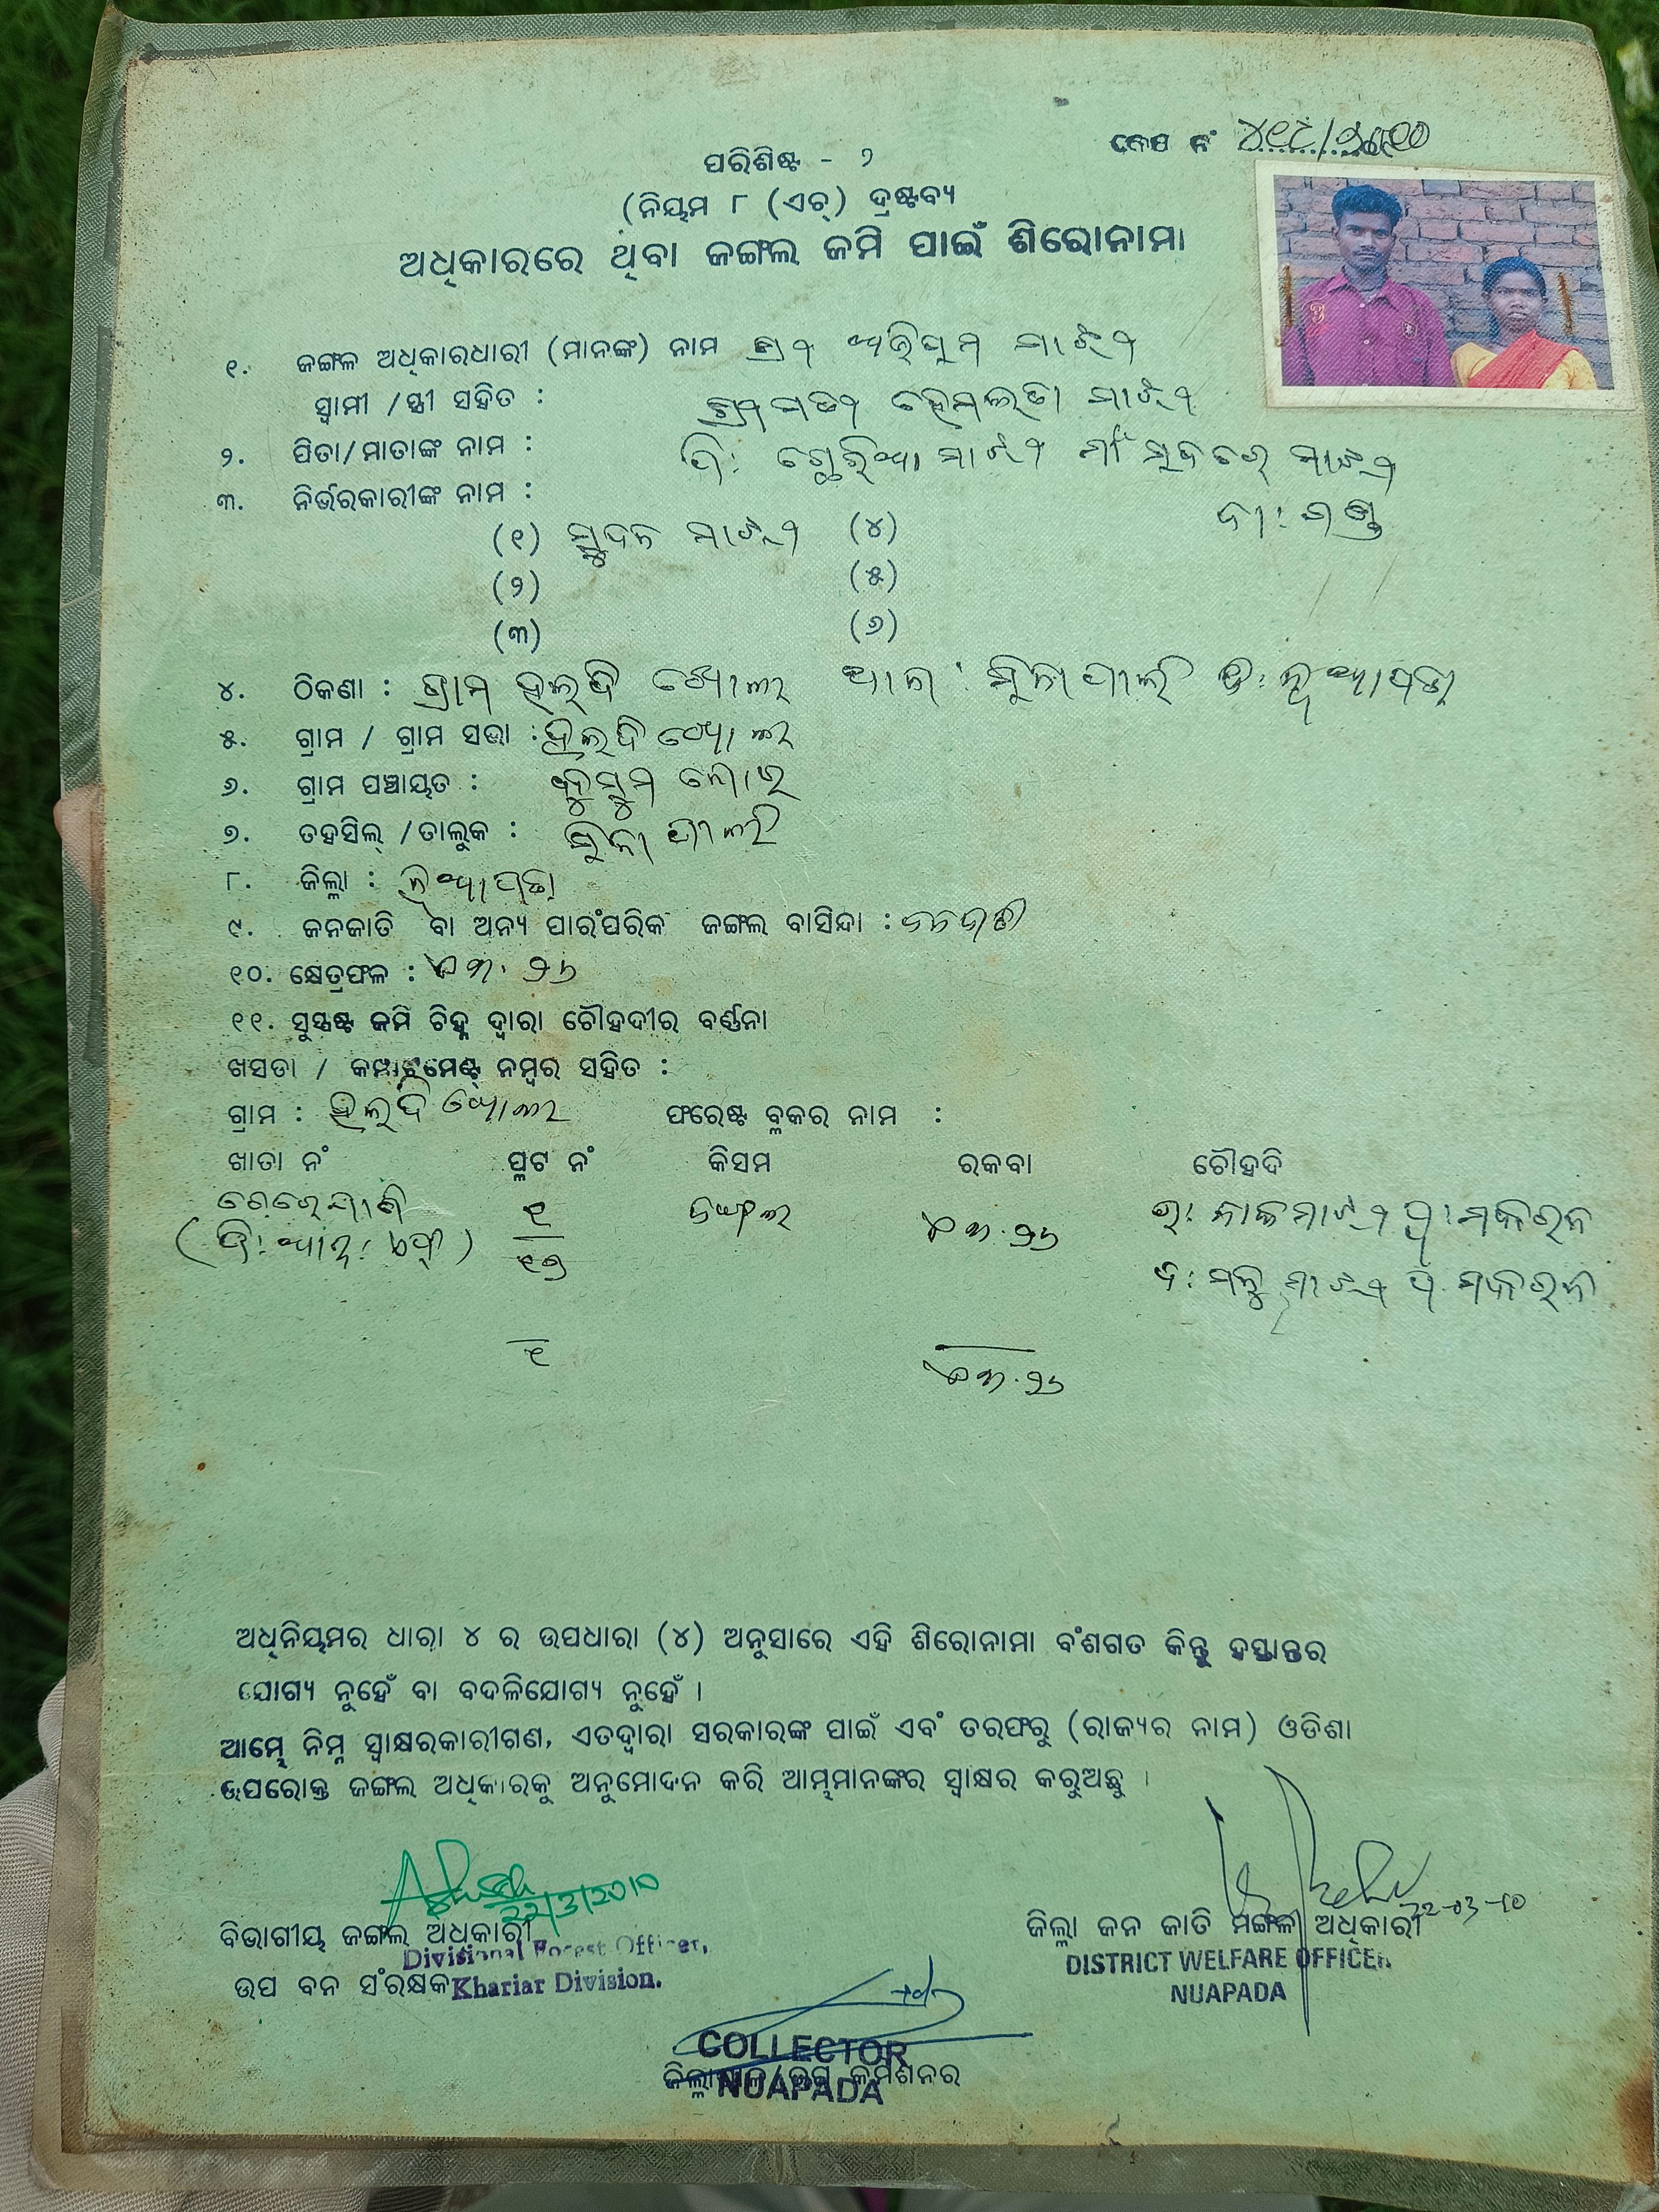 କେସ ନଂ ୪୧୮/୨୦୧୦
ପରିଶିଷ୍ଟ - ୨
(ନିୟମ ୮ (ଏଚ୍) ଦ୍ରଷ୍ଟବ୍ୟ
ଅଧିକାରରେ ଥିବା ଜଙ୍ଗଲ ଜମି ପାଇଁ ଶିରୋନାମା
୧. ଜଙ୍ଗଲ ଅଧିକାରଧାରୀ (ମାନଙ୍କ) ନାମ ଶ୍ରୀ ମାଝୀ
ସ୍ୱାମୀ /ସ୍ତ୍ରୀ ସହିତ : ଶ୍ରୀମତୀ ହେମଲତା ମାଝୀ
୨. ପିତା/ମାତାଙ୍କ ନାମ : ପି: ମାଝୀ ମାଝୀ
୩. ନିର୍ଭରକାରୀଙ୍କ ନାମ : ଜା: ଗଣ୍ଡ
(୧) ମାଝୀ (୪)
(୨) (୫)
(୩) (୬)
୪. ଠିକଣା : ଗ୍ରାମ ହଲଦି ଖୋଲ ଥାନା: ସିନାପାଲି ଜି: ନୂଆପଡା
୫. ଗ୍ରାମ / ଗ୍ରାମ ସଭା : ହଲଦି ଖୋଲ
୬. ଗ୍ରାମ ପଞ୍ଚାୟତ :
୭. ତହସିଲ୍ /ତାଲୁକ : ସିନାପାଲି
୮. ଜିଲ୍ଲା : ନୂଆପଡା
୯. ଜନଜାତି ବା ଅନ୍ୟ ପାରଂପରିକ ଜଙ୍ଗଲ ବାସିନ୍ଦା : ଜନଜାତି
୧୦. କ୍ଷେତ୍ରଫଳ : ଏକ. ୨୬
୧୧. ସୁସ୍ପଷ୍ଟ ଜମି ଚିହ୍ନ ଦ୍ୱାରା ଚୌହଦୀର ବର୍ଣ୍ଣନା
ଖସଡା / କମ୍ପାର୍ଟମେଣ୍ଟ୍ ନମ୍ବର ସହିତ :
ଗ୍ରାମ : ହଲଦି ଖୋଲ ଫରେଷ୍ଟ ବ୍ଲକର ନାମ :
ଖାତା ନଂ ପ୍ଳଟ ନଂ କିସମ ରକବା ଚୌହଦି
୧ ଜଙ୍ଗଲ ଏକ.୨୬ ଉ: ମାଝୀ
୧୭ ଦ: ମାଝୀ
୧ ଏକ.୨୬
ଅଧିନିୟମର ଧାରା ୪ ର ଉପଧାରା (୪) ଅନୁସାରେ ଏହି ଶିରୋନାମା ବଂଶଗତ କିନ୍ତୁ ହସ୍ତାନ୍ତର
ଯୋଗ୍ୟ ନୁହେଁ ବା ବଦଳିଯୋଗ୍ୟ ନୁହେଁ ।
ଆମ୍ଭେ ନିମ୍ନ ସ୍ୱାକ୍ଷରକାରୀଗଣ, ଏତଦ୍ୱାରା ସରକାରଙ୍କ ପାଇଁ ଏବଂ ତରଫରୁ (ରାଜ୍ୟର ନାମ) ଓଡିଶା
ଉପରୋକ୍ତ ଜଙ୍ଗଲ ଅଧିକାରକୁ ଅନୁମୋଦନ କରି ଆମ୍ଭମାନଙ୍କର ସ୍ୱାକ୍ଷର କରୁଅଛୁ ।
22/3/2010
22-03-10
ବିଭାଗୀୟ ଜଙ୍ଗଲ ଅଧିକାରୀ
Divisional Forest Officer,
ଉପ ବନ ସଂରକ୍ଷକ Khariar Division.
ଜିଲ୍ଲା ଜନ ଜାତି ମଙ୍ଗଳ ଅଧିକାରୀ
DISTRICT WELFARE OFFICER
NUAPADA
COLLECTOR
ଜିଲ୍ଲାପାଳ/ଉପ କମିଶନର
NUAPADA